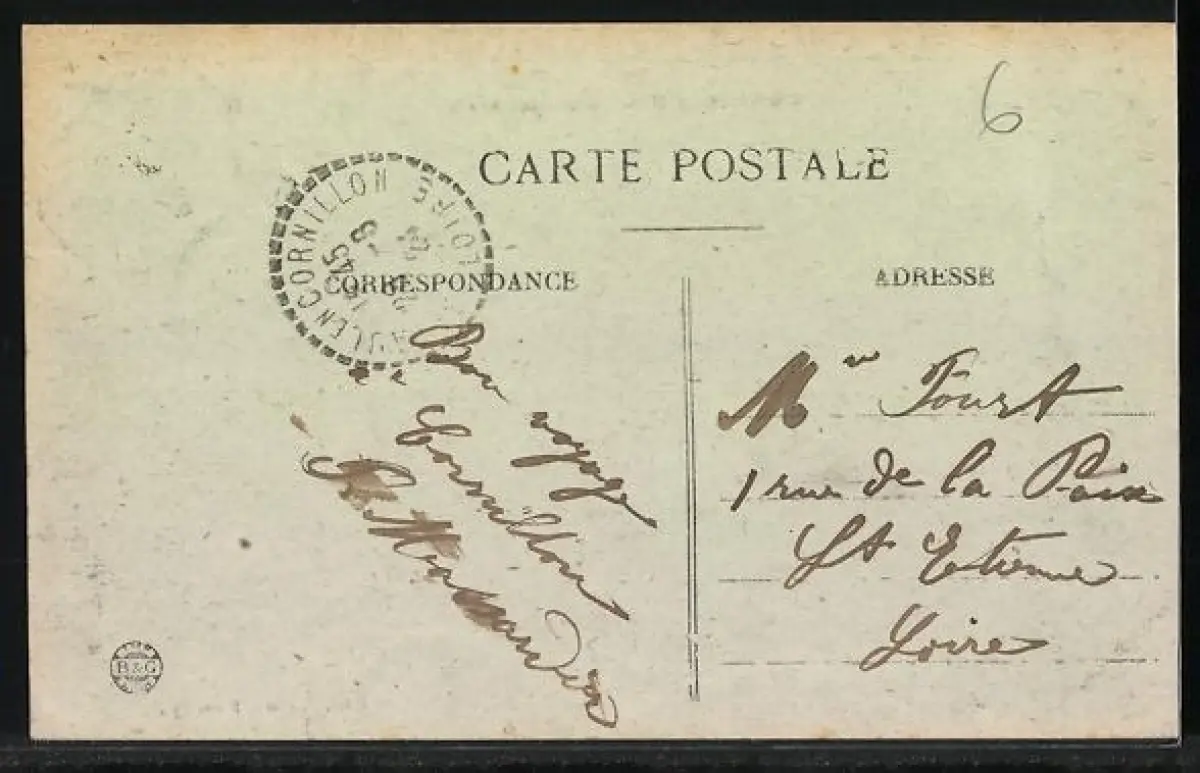 6
CARTE POSTALE
CORNILLON LOIRE
15
CORRESPONDANCE
ADRESSE
Bon voyage
à Cornillon
Mr
1 rue de la Paix
St Etienne
Loire
B & G